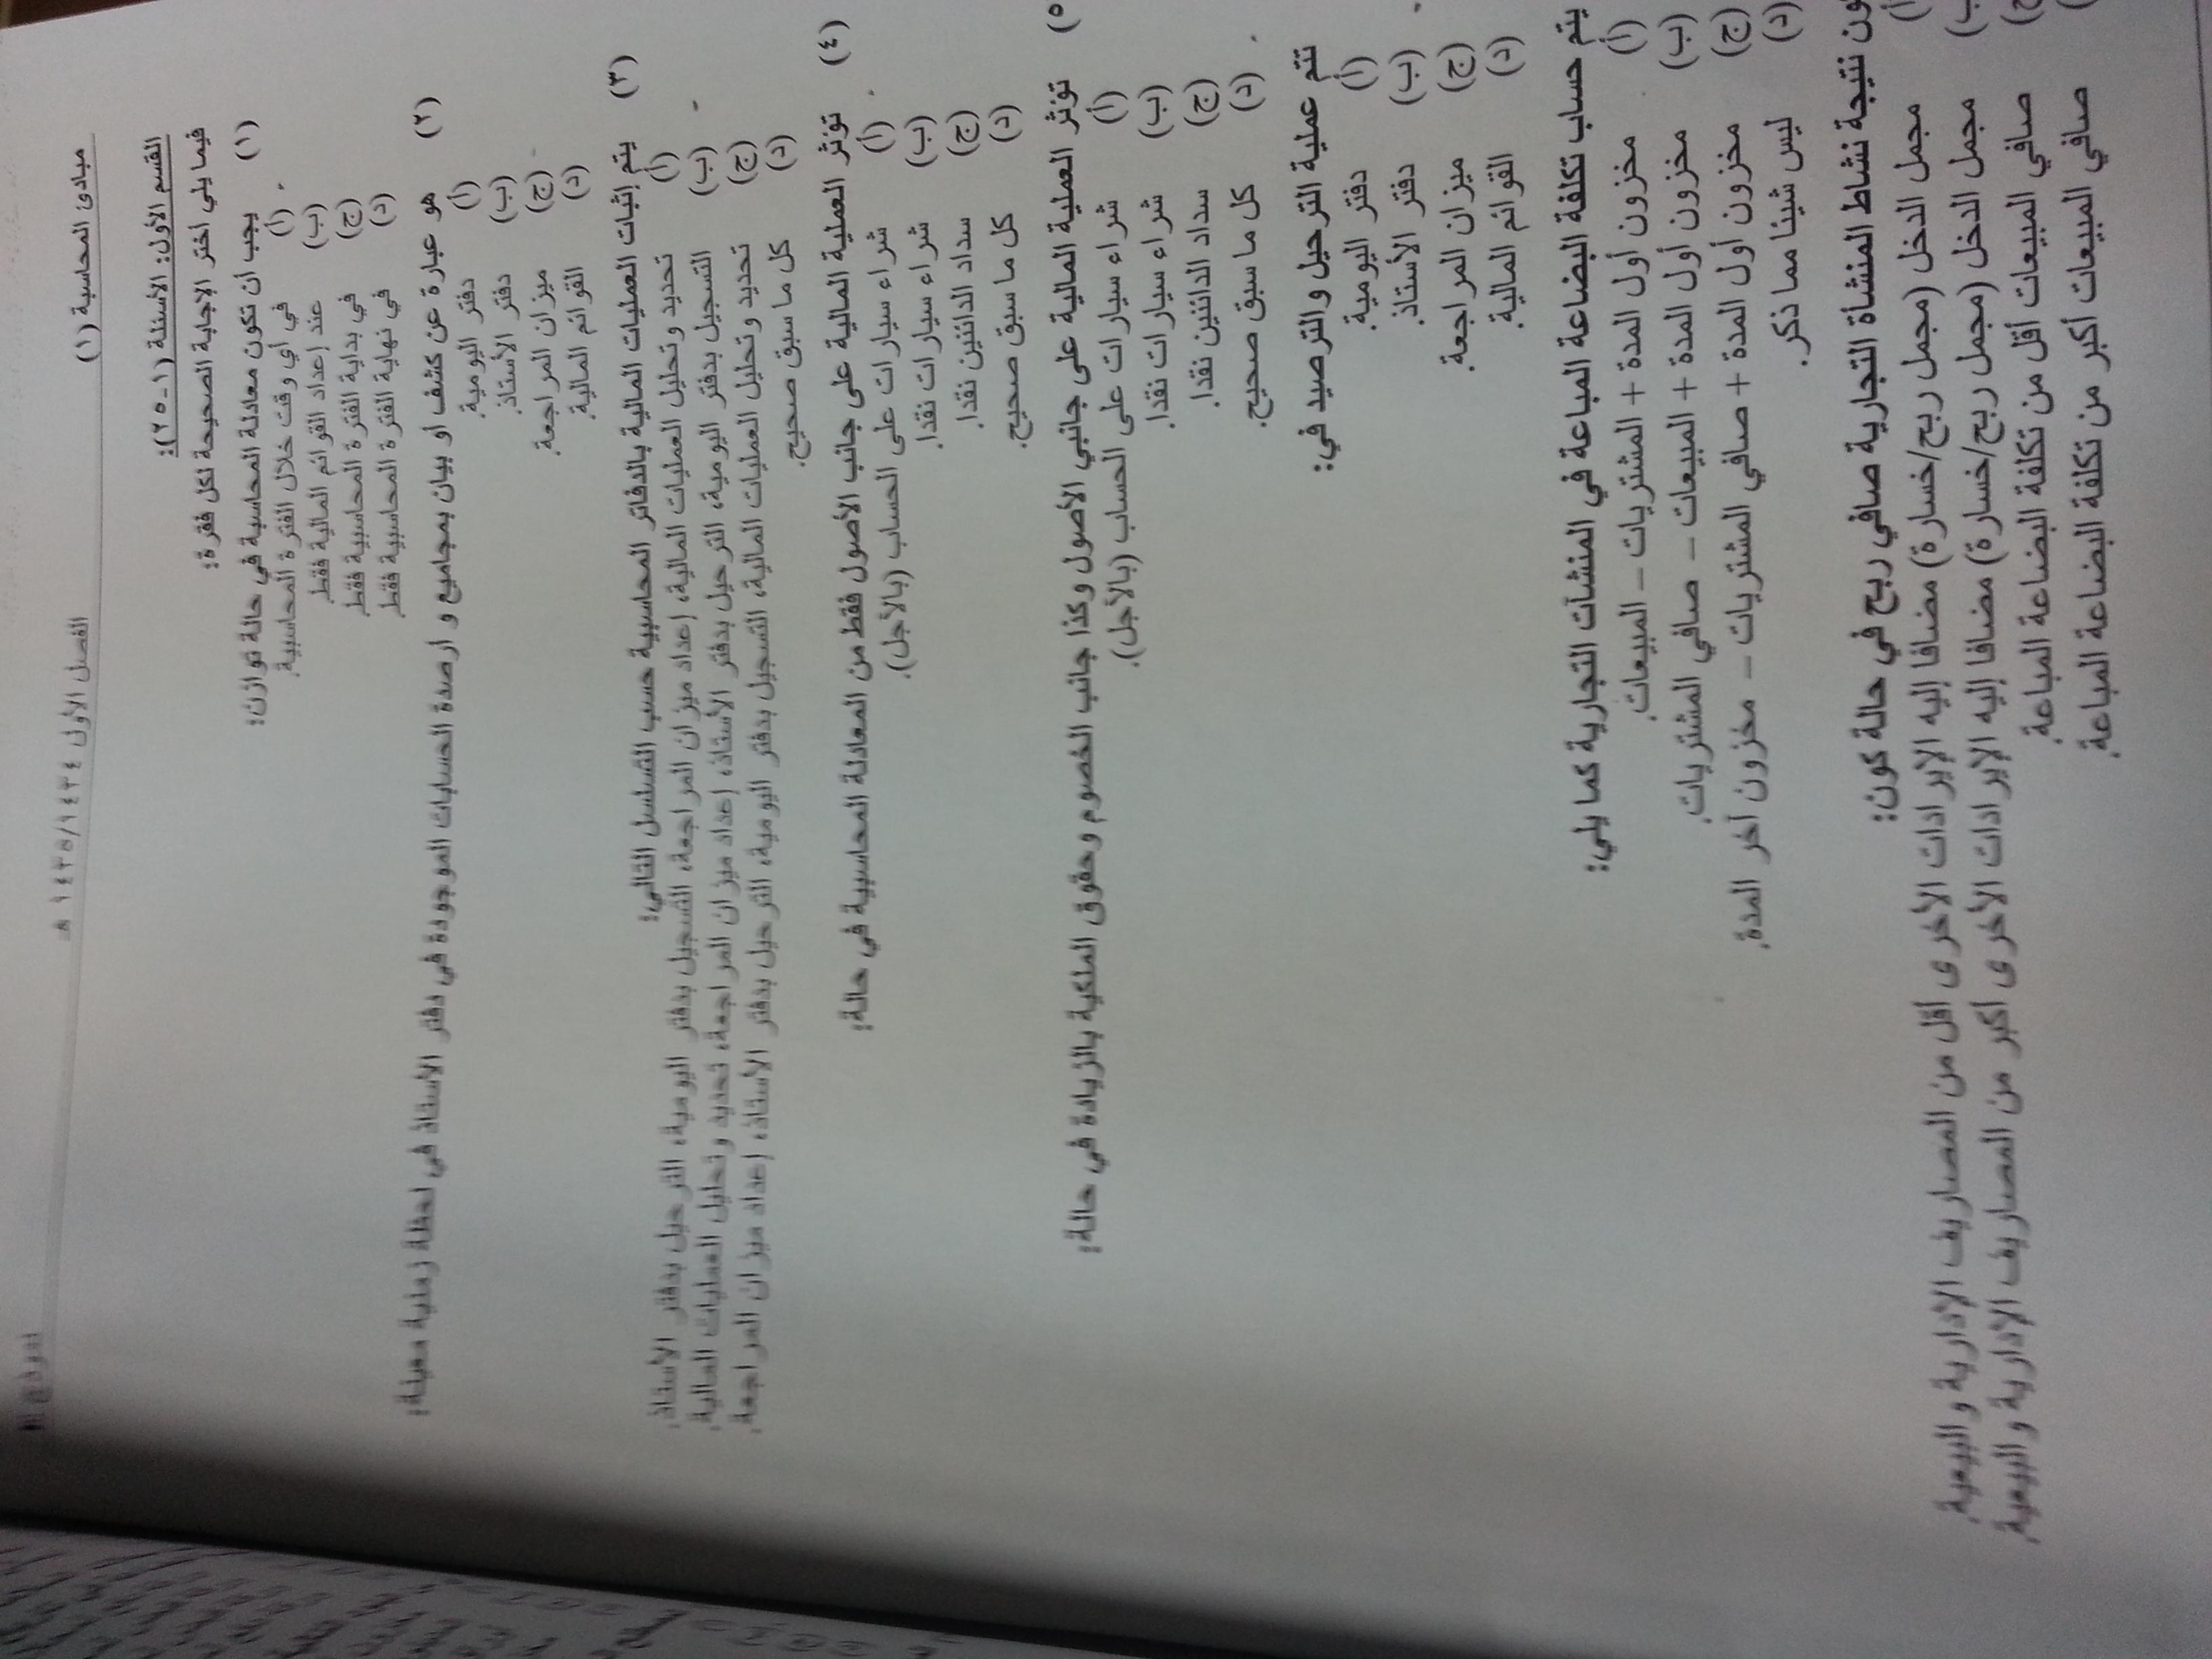 مبادئ المحاسبة (١) الفصل الأول ١٤٣٤/١٤٣٥ هـ
القسم الأول: الأسئلة (١-٢٥):
فيما يلي اختر الإجابة الصحيحة لكل فقرة:
(١) يجب أن تكون معادلة المحاسبة في حالة توازن:
(أ) في أي وقت خلال الفترة المحاسبية.
(ب) عند إعداد القوائم المالية فقط.
(ج) في بداية الفترة المحاسبية فقط.
(د) في نهاية الفترة المحاسبية فقط.
(٢) هو عبارة عن كشف أو بيان بمجاميع و أرصدة الحسابات الموجودة في دفتر الأستاذ في لحظة زمنية معينة:
(أ) دفتر اليومية.
(ب) دفتر الأستاذ.
(ج) ميزان المراجعة.
(د) القوائم المالية.
(٣) يتم إثبات العمليات المالية بالدفاتر المحاسبية حسب التسلسل التالي:
(أ) تحديد وتحليل العمليات المالية، إعداد ميزان المراجعة، التسجيل بدفتر اليومية، الترحيل بدفتر الأستاذ.
(ب) التسجيل بدفتر اليومية، الترحيل بدفتر الأستاذ، إعداد ميزان المراجعة، تحديد وتحليل العمليات المالية.
(ج) تحديد وتحليل العمليات المالية، التسجيل بدفتر اليومية، الترحيل بدفتر الأستاذ، إعداد ميزان المراجعة.
(د) كل ما سبق صحيح.
(٤) تؤثر العملية المالية على جانب الأصول فقط من المعادلة المحاسبية في حالة:
(أ) شراء سيارات على الحساب (بالأجل).
(ب) شراء سيارات نقدا.
(ج) سداد الدائنين نقدا.
(د) كل ما سبق صحيح.
(٥ تؤثر العملية المالية على جانبي الأصول وكذا جانب الخصوم وحقوق الملكية بالزيادة في حالة:
(أ) شراء سيارات على الحساب (بالأجل).
(ب) شراء سيارات نقدا.
(ج) سداد الدائنين نقدا.
(د) كل ما سبق صحيح.
تتم عملية الترحيل والترصيد في:
(أ) دفتر اليومية.
(ب) دفتر الأستاذ.
(ج) ميزان المراجعة.
(د) القوائم المالية.
يتم حساب تكلفة البضاعة المباعة في المنشآت التجارية كما يلي:
(أ) مخزون أول المدة + المشتريات – المبيعات.
(ب) مخزون أول المدة + المبيعات – صافي المشتريات.
(ج) مخزون أول المدة + صافي المشتريات – مخزون آخر المدة.
(د) ليس شيئا مما ذكر.
ون نتيجة نشاط المنشأة التجارية صافي ربح في حالة كون:
(أ مجمل الدخل (مجمل ربح/خسارة) مضافا إليه الإيرادات الأخرى أقل من المصاريف الإدارية و البيعية.
(ب مجمل الدخل (مجمل ربح/خسارة) مضافا إليه الإيرادات الأخرى أكبر من المصاريف الإدارية و البيعية.
(ج صافي المبيعات أقل من تكلفة البضاعة المباعة.
صافي المبيعات أكبر من تكلفة البضاعة المباعة.